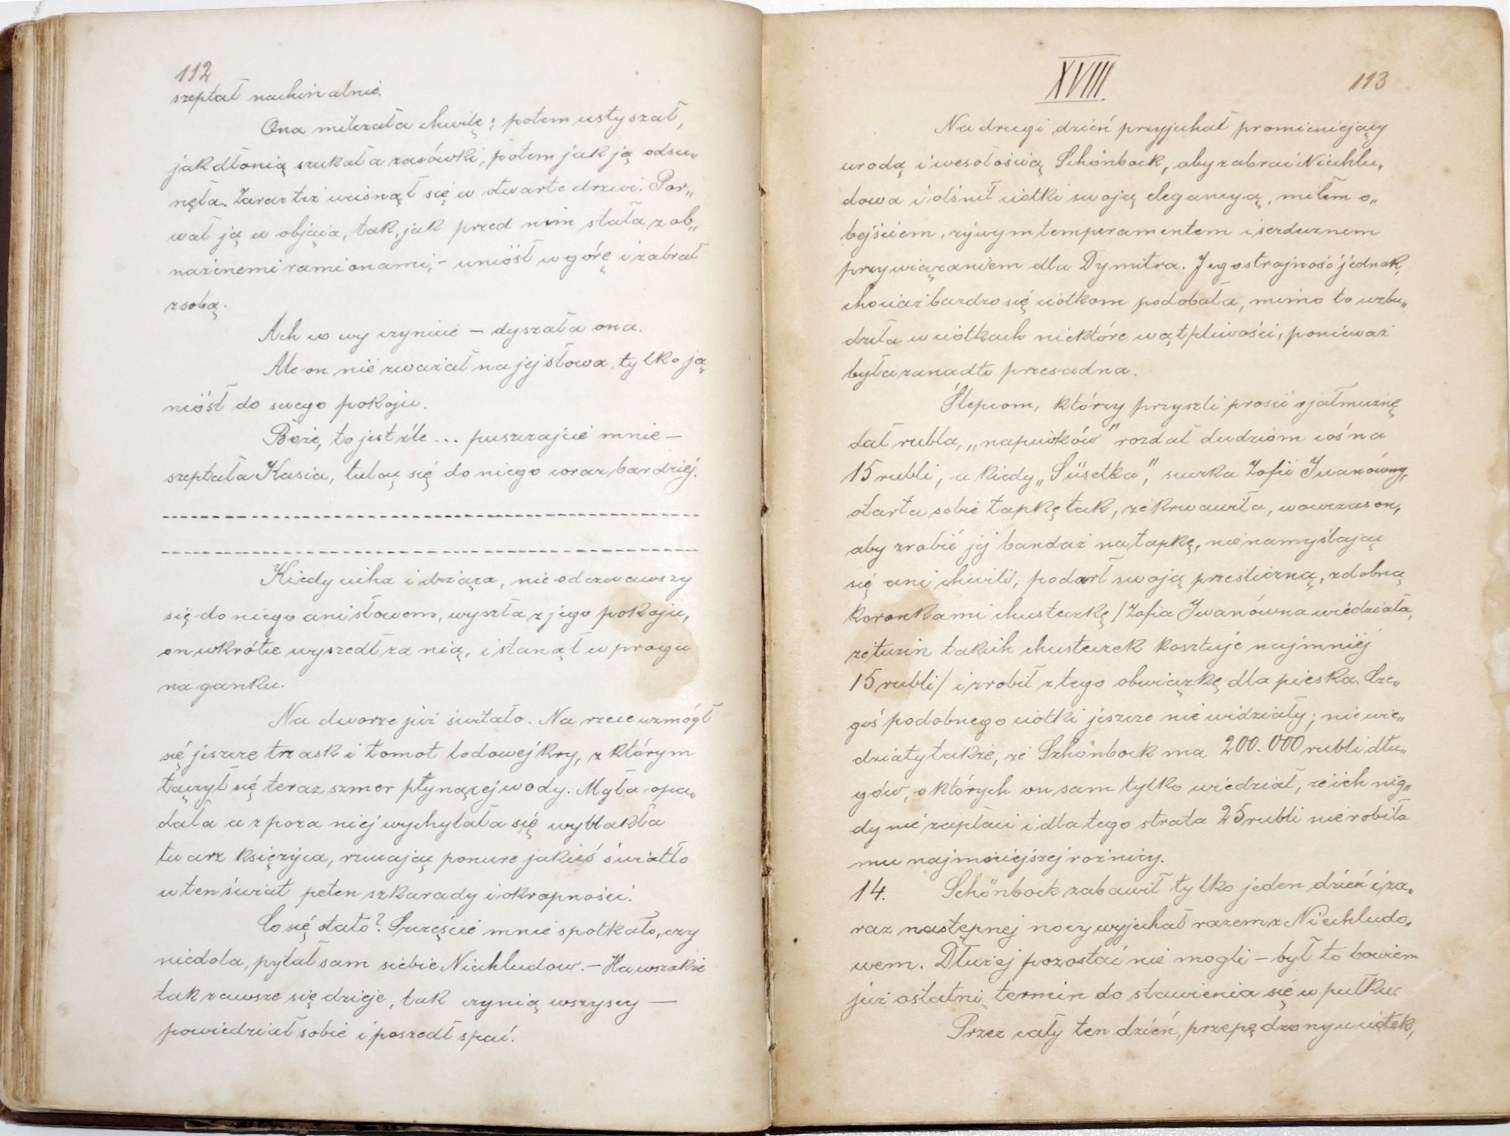 112
szeptał machinalnie.
Ona milczała chwilę; potem usłyszał,
jak dłonią szukała zasówki, potem jak ją odsu„
nęła. Zaraz też wcisnął się w otwarte drzwi. Por„
wał ją w objęcia, tak, jak przed nim stała z ob„
nażonemi ramionami, – uniósł w górę i zabrał
z sobą.
Ach co wy czynicie – dyszała ona.
Ale on nie zważał na jej słowa, tylko ją
niósł do swego pokoju.
Boże, to jest źle ... puszczajcie mnie –
szeptała Kasia, tuląc się do niego coraz bardziej.
Kiedy cicha i drżąca, nie odezwawszy
się do niego ani słowem, wyszła z jego pokoju,
on wkrótce wyszedł za nią, i stanął w progu
na ganku.
Na dworze już świtało. Na rzece wzmógł
się jeszcze trzask i łomot lodowej kry, z którym
łączył się teraz szmer płynącej wody. Mgła opa„
dała a z poza niej wychylała się wybladła
twarz księżyca, rzucając ponure jakieś światło
w ten świat pełen szkarady i okropności.
Co się stało? Szczęście mnie spotkało, czy
niedola, pytał sam siebie Niechludow. – Ha wszakże
tak zawsze się dzieje, tak czynią wszyscy —
powiedział sobie i poszedł spać.
XVIII.
113
Na drugi dzień przyjechał promieniejący
urodą i wesołością Schönbock, aby zabrać Niechlu„
dowa i olśnił ciotki swoją elegancyą, miłem o„
bejściem, żywym temperamentem i serdecznem
przywiązaniem dla Dymitra. Jego strojność jednak,
chociaż bardzo się ciotkom podobała, mimo to wzbu„
dziła w ciotkach niektóre wątpliwości, ponieważ
była zanadto przesadna.
Ślepcom, którzy przyszli prosić o jałmużnę
dał rubla, „napiwków" rozdał dudziom coś na
15 rubli, a kiedy „Süsetka", suczka Zofii Iwanówny,
otarła sobie łapkę tak, że krwawiła, wówczas on,
aby zrobić jej bandaż na łapkę, nie namyślając
się ani chwili, podarł swoją prześliczną, zdobną
koronkami chusteczkę / Zofia Iwanówna wiedziała,
że tuzin takich chusteczek kosztuje najmniej
15 rubli / i zrobił z tego obwiązkę dla pieska. Cze„
goś podobnego ciotki jeszcze nie widziały; nie wie„
działy także, że Schönbock ma 200.000 rubli dłu„
gów, o których on sam tylko wiedział, że ich nig„
dy nie zapłaci i dlatego strata 25 rubli nie robiła
mu najmniejszej różnicy.
14. Schönbock zabawił tylko jeden dzień i za„
raz następnej nocy wyjechał razem z Niechludo„
wem. Dłużej pozostać nie mogli – był to bowiem
już ostatni termin do stawienia się w pułku.
Przez cały ten dzień, przepędzony u ciotek,